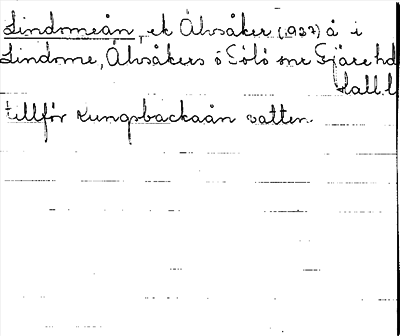 Lindomeån, ek Älvsåker (1937) å i
Lindome, Älvsåkers o Sölö snr Fjäre hd
Hall. l
tillför Kungsbackaån vatten.